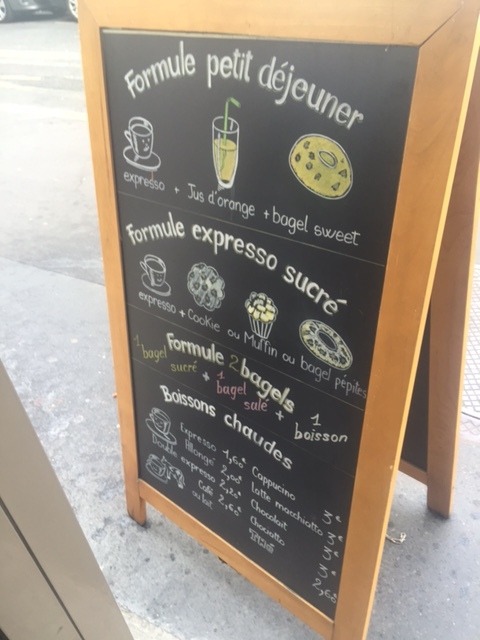 Formule petit déjeuner
expresso + Jus d'orange + bagel sweet
Formule expresso sucré
expresso + Cookie ou Muffin ou bagel pépites
Formule 2 bagels
1 bagel sucré + 1 bagel salé + 1 boisson
Boissons chaudes
Expresso 1,60€
Allongé 2,00€
Double expresso 2,20€
Café au lait 2,60€
Cappucino 3€
latte macchiatto 3€
Chocolat 3€
3€
2,60€